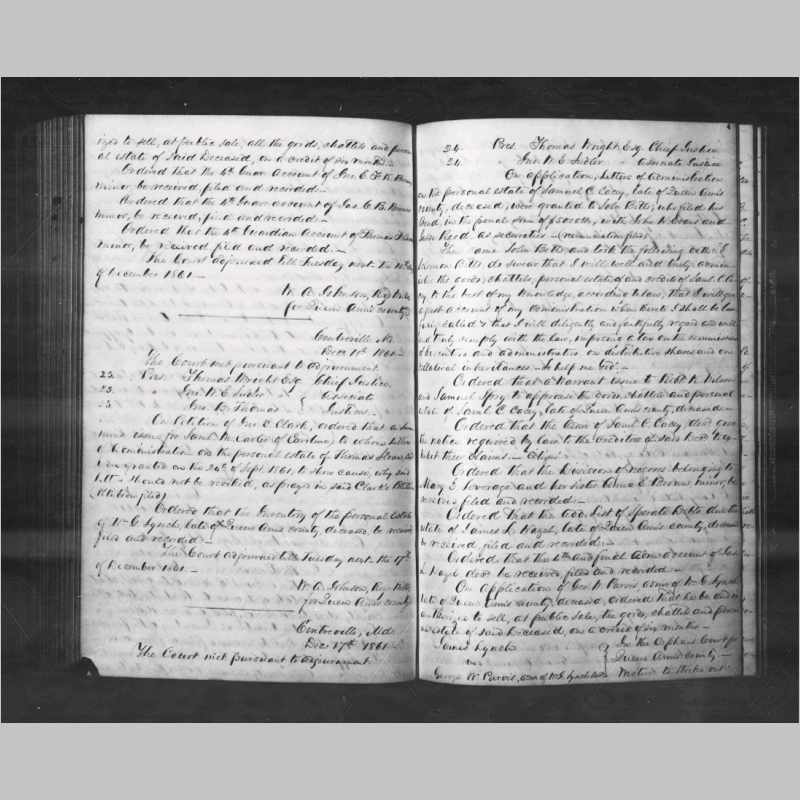 ized to sell, at public sale, all the goods, chattels and person
al estate of said Deceased, on a credit of six months.
Ordered that the 4th Guar Account of Geo. E. F. R.
minor, be received filed and recorded.
Ordered that the 4th Guar account of Jas. C. B.
minor, be received, filed and recorded.
Ordered that the 4th Guardian Account of Thomas
minor, be received filed and recorded.
The Court adjourned till Tuesday next the
of December 1861
W. A. Johnson, Reg Wills
for Queen Ann's county
Centreville, Md.
Dec 1861
The Court met pursuant to adjournment
23. Pres. Thomas Wright Esq Chief Justice
23. " Jno. W. E. Sudler } Associate
23. " Jno. B. Thomas } Justices
On Petition of Jno. C. Clark, ordered that a sum
mons issue for Saml. W. Carter of Caroline, to whom letters
of administration on the personal estate of Thomas
were granted on the 24th of Sept. 1861, to show cause, why said
letters should not be revoked, as prayed in said Clark's Petition
(Petition filed)
Ordered that the Inventory of the personal estate
of Wm. C. Lynch, late of Queen Anns county, deceased, be received
filed and recorded
The Court adjourned till Tuesday next the 17th
of December 1861.
W. A. Johnson, Reg Wills
for Queen Ann's county
Centreville, Md.
Dec 17th 1861
The Court met pursuant to adjournment
24. Pres. Thomas Wright Esq Chief Justice
24. " Jno. W. E. Sudler " Associate Justice
On application, letters of administration
on the personal estate of Samuel C. Casey, late of Queen Ann's
county, deceased, were granted to John Betts, who filed his
bond, in the penal sum of with John W. Evans and
as securities
The same John Betts and took the following oath: I
do swear that I will well and truly admin
ister the goods, chattels, personal estate and credits of Saml. C. Ca
sey, to the best of my knowledge, according to law, that I will give
a just account of my administration when thereto I shall be law
fully called & that I will diligently and faithfully regard and well
and truly comply with the law, imposing a tax on the commissions
of executors and administrators on distributive shares and on
collateral inheritances. So help me God.
Ordered that a Warrant issue to Robt. W.
and Samuel to appraise the goods, chattels and personal
estate of Saml. C. Casey, late of Queen Ann's county, deceased.
Ordered that the Admr of Saml. C. Casey, dec'd give
the notice required by law to the creditors of said dec'd to ex
hibit their claims.
Ordered that the Division of negroes belonging to
Mary and her sister be
received filed and recorded.
Ordered that the add. List of Sperate Debts due the
estate of James L. late of Queen Ann's county, deceased
be received, filed and recorded.
Ordered that the and final Adm account of Jas.
L. dec'd be received filed and recorded.
On application of Geo. W. Parvis admr of Wm. C. Lynch
late of Queen Ann's county, deceased, ordered that he be author
ized to sell, at public sale, the goods, chattels and person
al estate of said deceased, on a credit of six months
James Lynch } In the Orphans Court for
vs } Queen Ann's county
George W. Parvis, adm of Wm. C. Lynch Motion to strike out